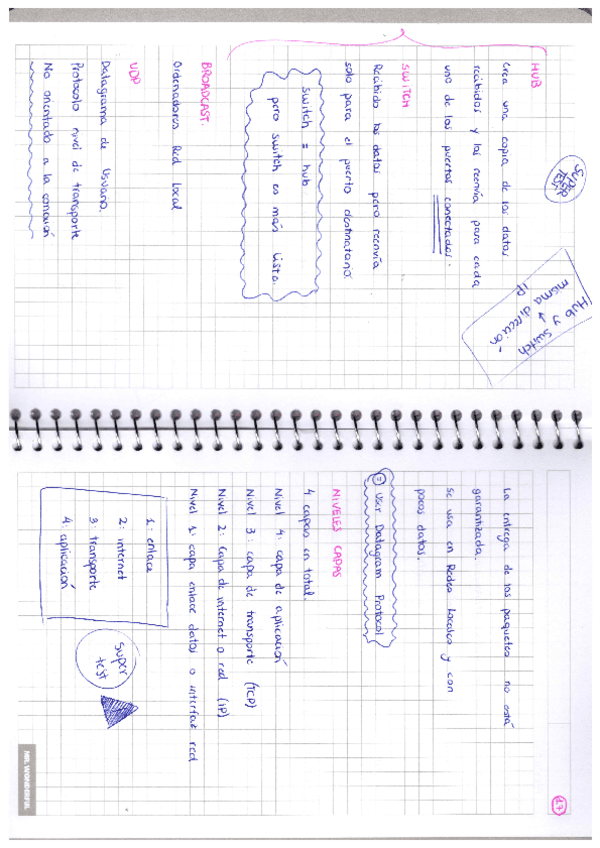 HUB
Crea una copia de los datos
recibidos y los reenvía para cada
uno de los puertos conectados.
SUPER
TEST
Hub y switch
↓
misma dirección
IP
SWITCH
Recibido los datos pero reenvía
solo para el puerto destinatario.
switch = hub
pero switch es más listo.
BROADCAST.
Ordenadores Red Local
UDP
Datagrama de Usuario.
Protocolo nivel de transporte
No orientado a la conexión
17
La entrega de los paquetes no está
garantizada.
Se usa en Redes locales y con
pocos datos.
= User Datagram Protocol
NIVELES CAPAS
4 capas en total.
Nivel 4: capa de aplicación
Nivel 3: capa de transporte (TCP)
Nivel 2: Capa de internet o red (IP)
Nivel 1: capa enlace datos o interfaz red
1: enlace
2: internet
3: transporte
4: aplicación
super
test
MR. WONDERFUL